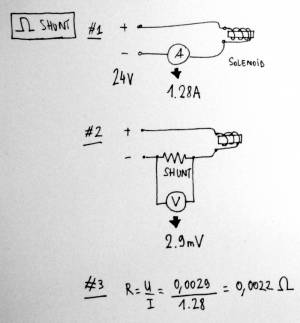 Ω SHUNT
#1
+
-
A
24V
1.28A
SOLENOID
#2
+
-
SHUNT
V
2.9mV
#3 R = U/I = 0,0029/1.28 = 0,0022 Ω